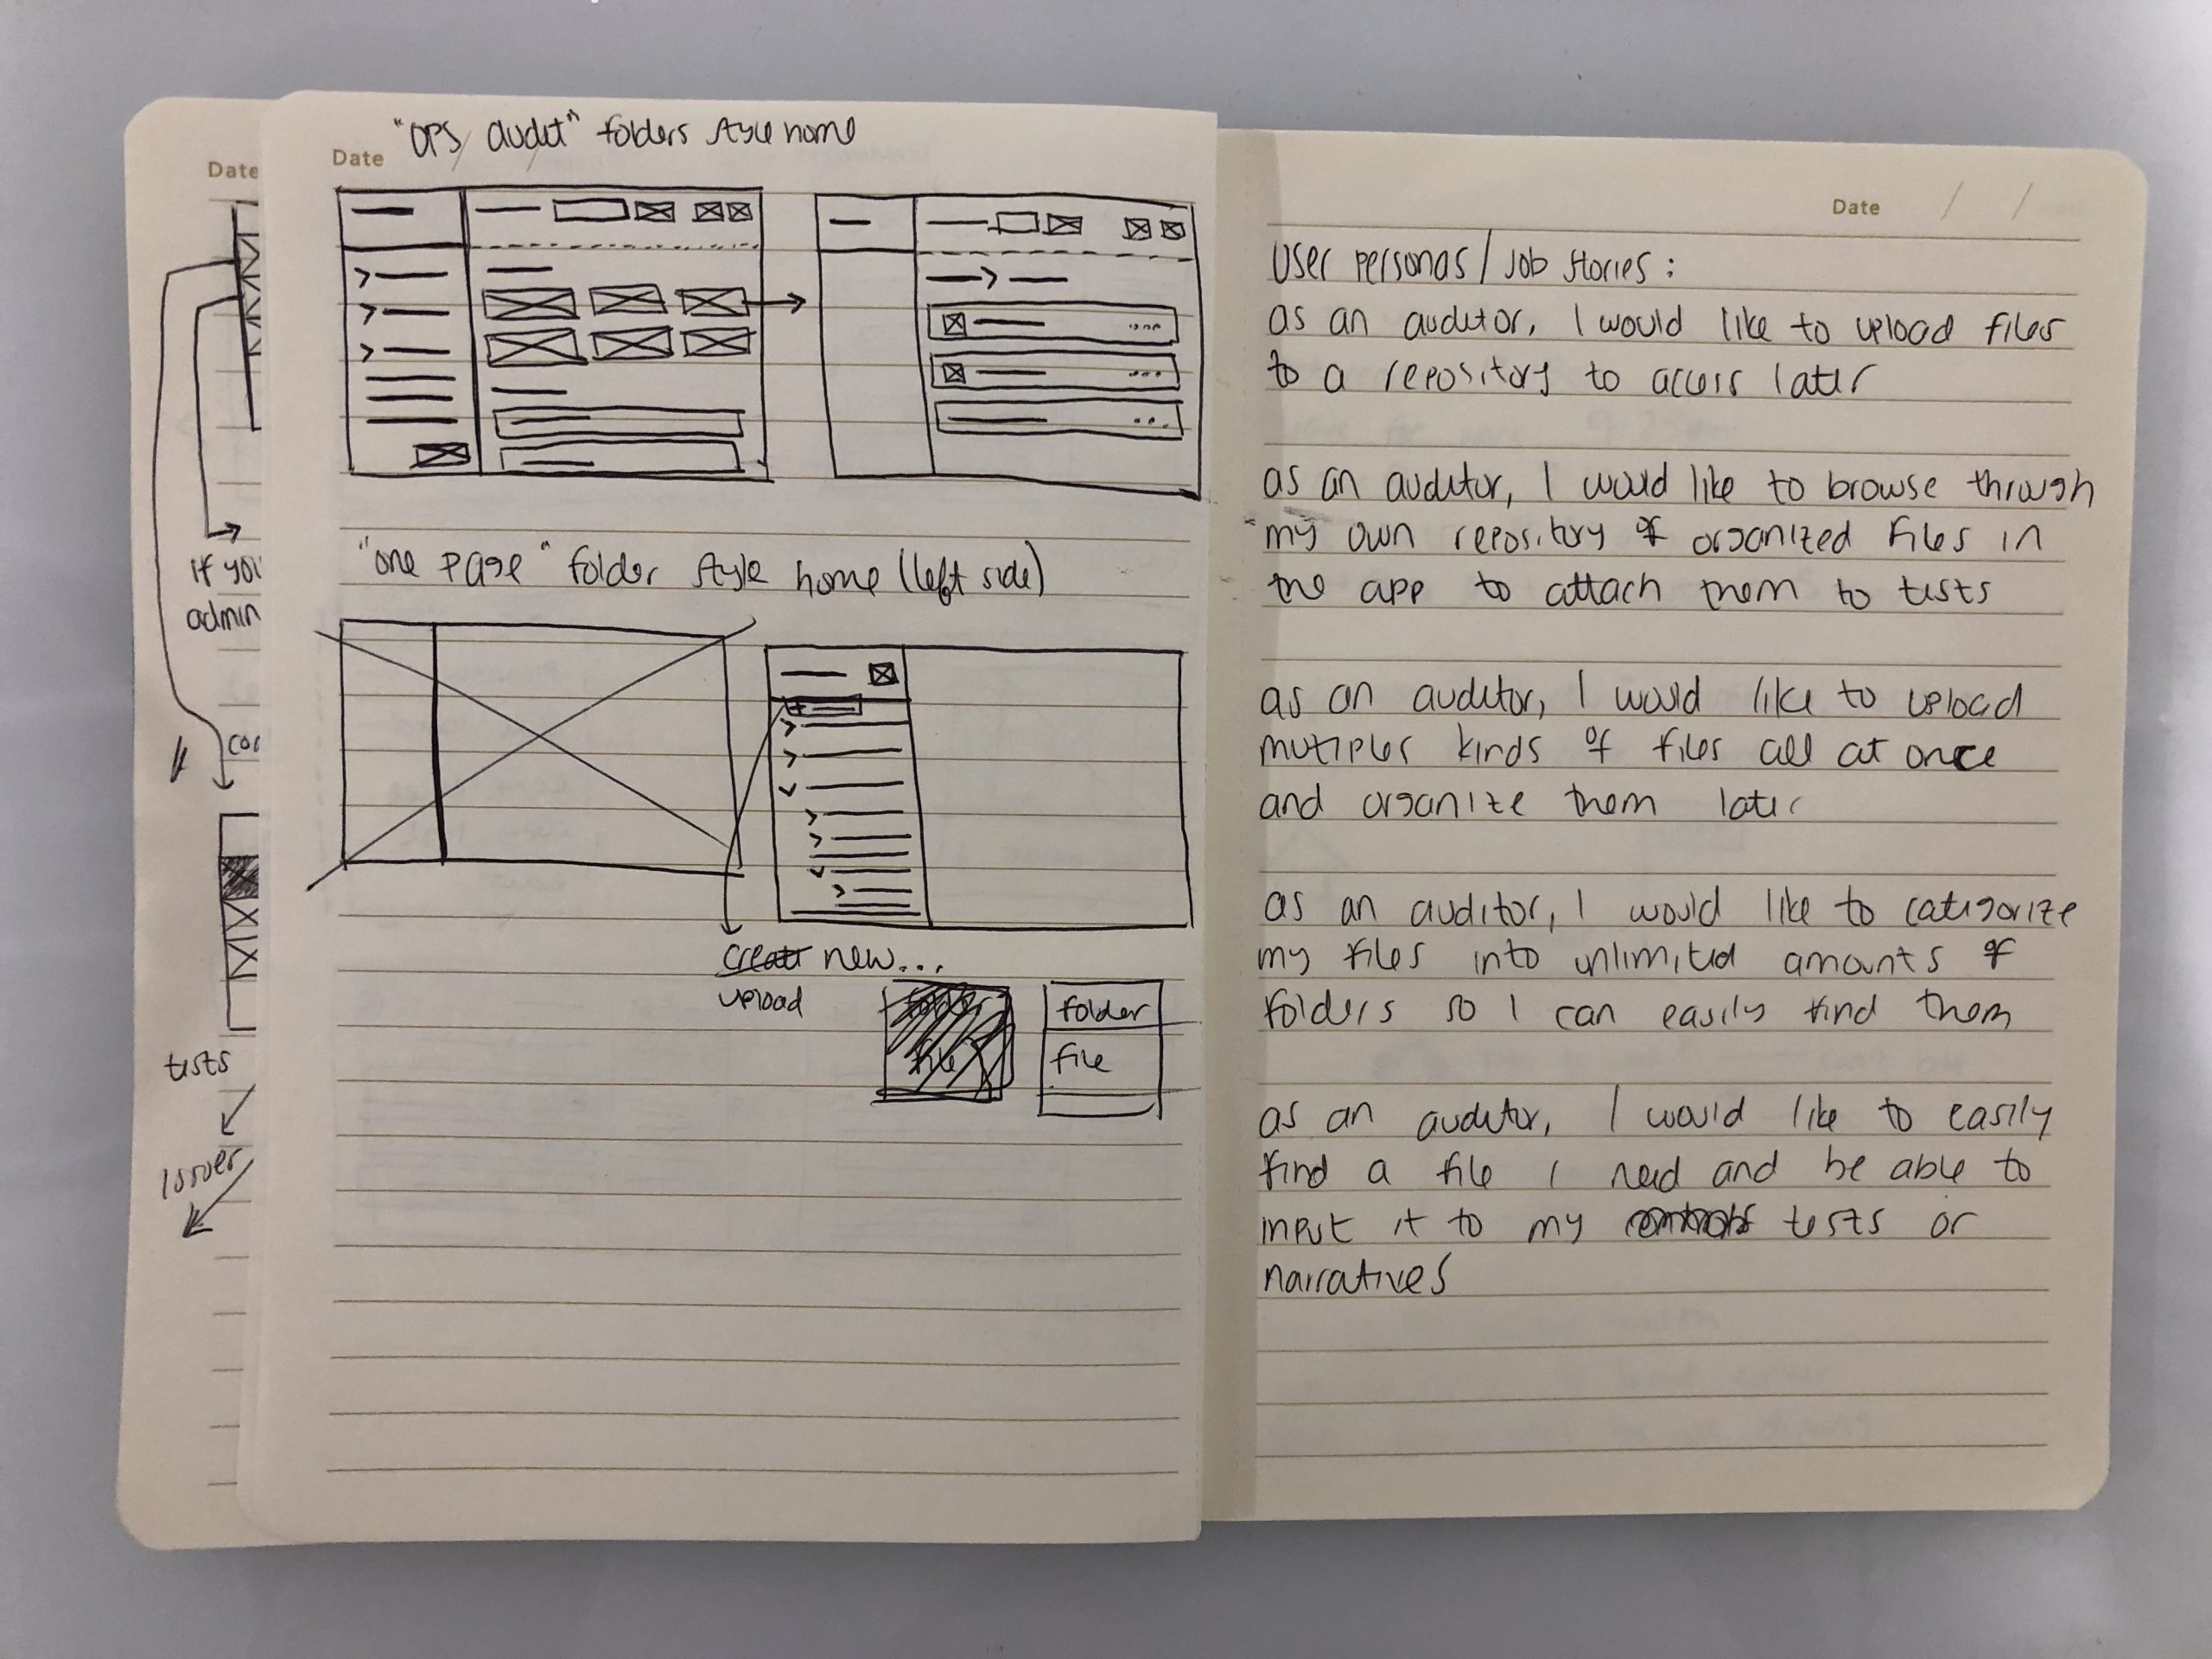 Date
if you
admin
cor
tests
issues
Date
"OPS audit" folders style home
"one page" folder style home (left side)
create new...
upload
folder
file
folder
file
Date / /
User personas / Job stories:
as an auditor, I would like to upload files
to a repository to access later
as an auditor, I would like to browse through
my own repository of organized files in
the app to attach them to tests
as an auditor, I would like to upload
multiples kinds of files all at once
and organize them later
as an auditor, I would like to categorize
my files into unlimited amounts of
folders so I can easily find them
as an auditor, I would like to easily
find a file I need and be able to
input it to my controls tests or
narratives